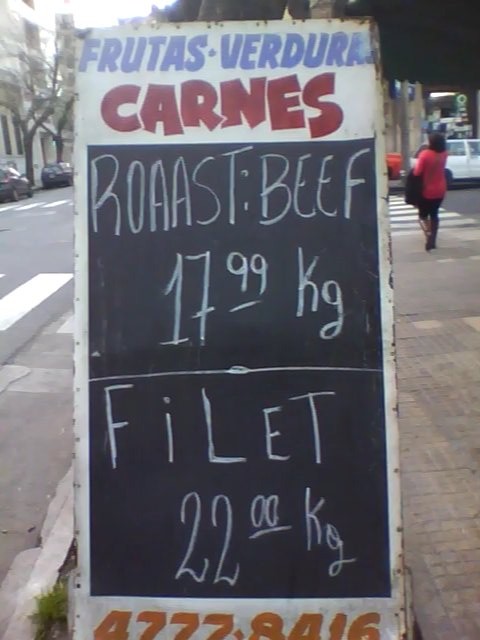 FRUTAS·VERDURA
CARNES
ROAAST:BEEF
17 99 Kg
FiLET
22 00 Kg
4777·8416